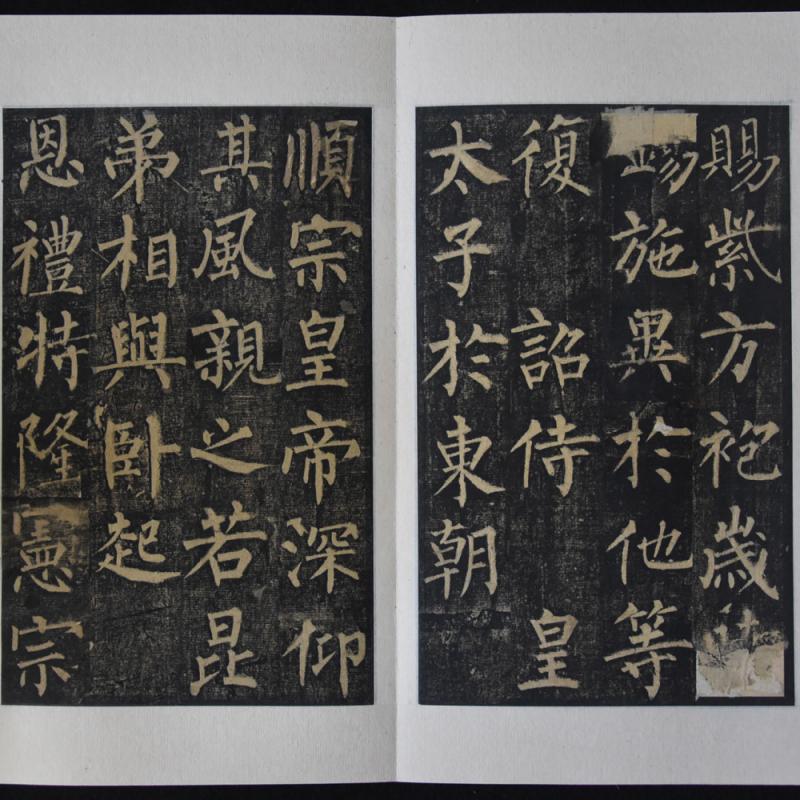 賜紫方袍歲
錫施異於他等
復 詔侍 皇
太子於東朝
順宗皇帝深仰
其風親之若昆
弟相與卧起
恩禮特隆憲宗